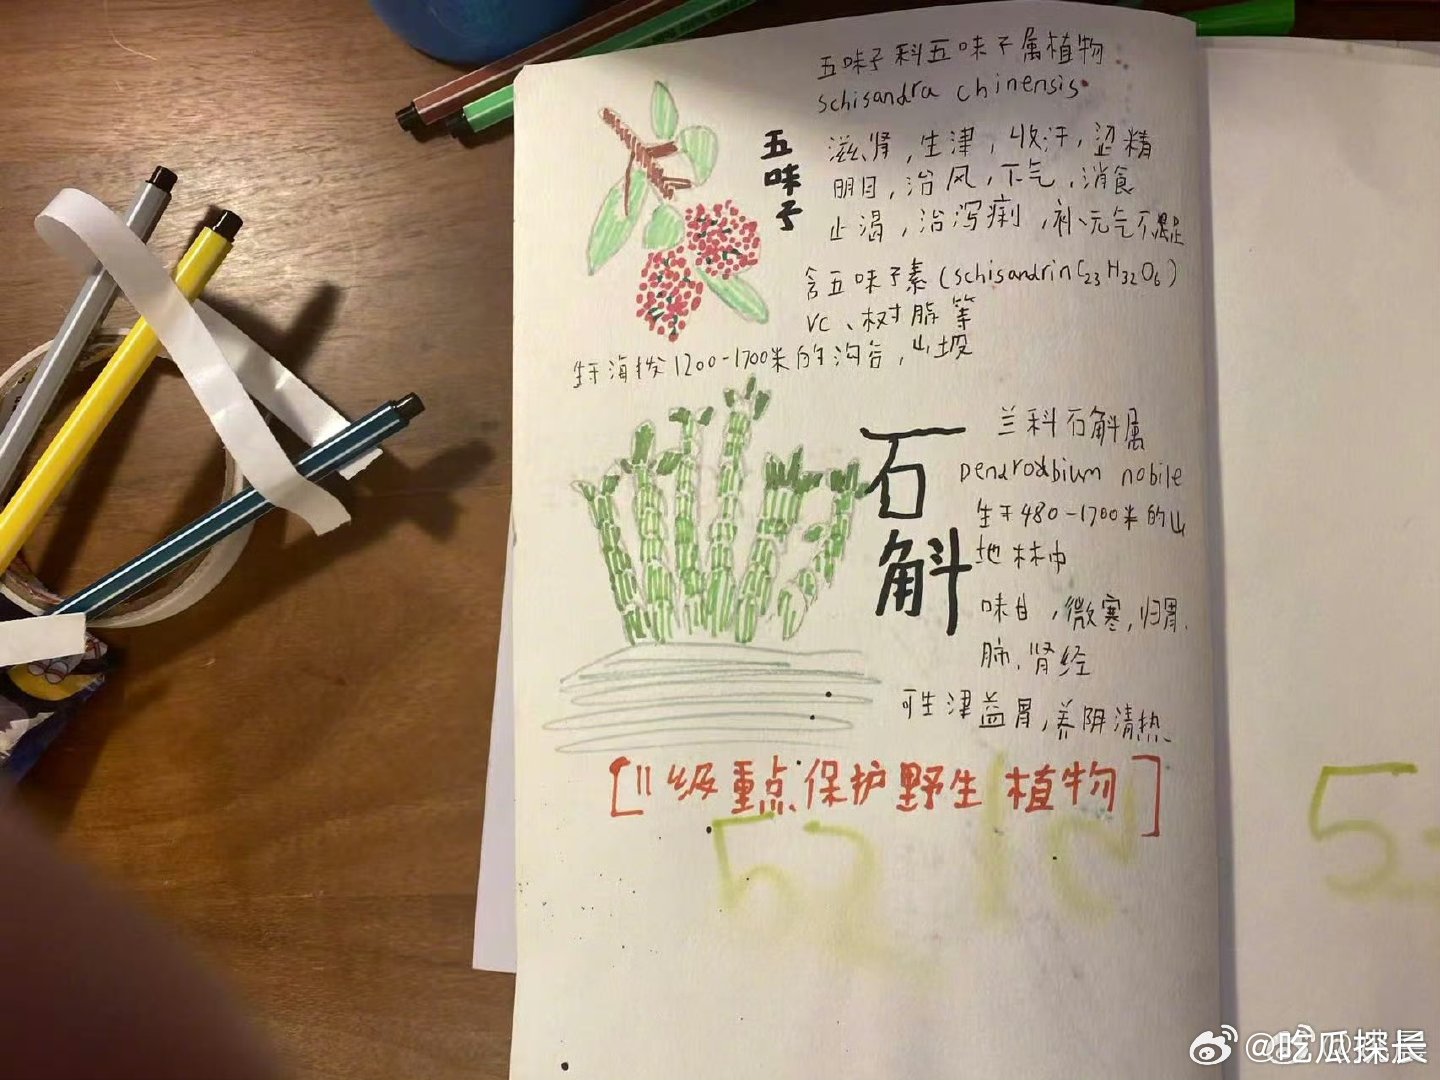 五味子科五味子属植物
schisandra chinensis
五味子
滋肾,生津,收汗,涩精
明目,治风,下气,消食
止渴,治泻痢,补元气不足
含五味子素(schisandrin C23H32O6)
VC、树脂等
生于海拔1200-1700米的沟谷,山坡
石斛
兰科石斛属
Dendrobium nobile
生于480-1700米的山
地林中
味甘,微寒,归胃、
肺、肾经
可生津益胃,养阴清热、
[II级重点保护野生植物]
52
5
@吃瓜探长